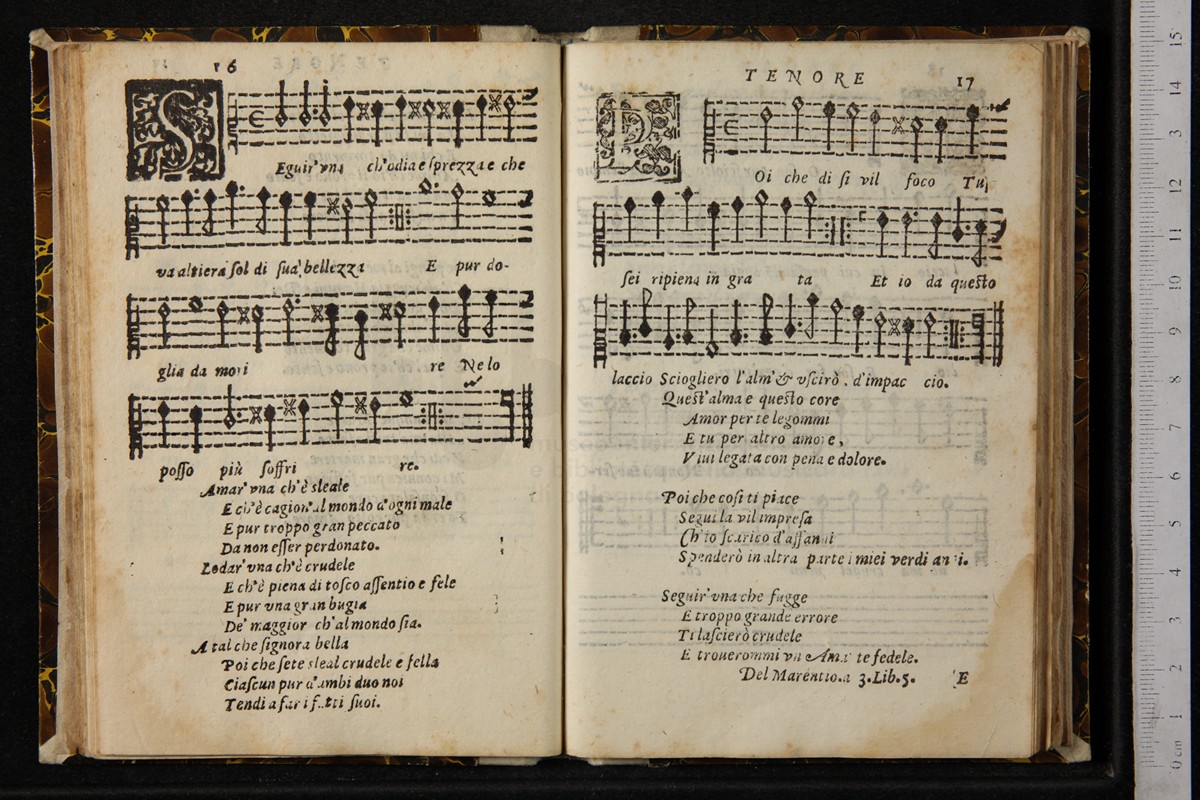 16
S
Eguir' vna ch'odia e sprezza e che
va altiera sol di sua bellezza E pur do-
glia da mori re Ne lo
posso più soffri re.
Amar' vna ch'è sleale
E ch'è cagion' al mondo d'ogni male
E pur troppo gran peccato
Da non esser perdonato.
Lodar' vna ch'è crudele
E ch'è piena di tosco assentio e fele
E pur vna gran bugia
De' maggior ch'al mondo sia.
A tal che signora bella
Poi che sete sleal crudele e fella
Ciascun pur d'ambi duo noi
Tendi a far i fatti suoi.
TENORE
17
P
Oi che di si vil foco Tu
sei ripiena in gra ta Et io da questo
laccio Sciogliero l'alm' & vscirò. d'impac cio.
Quest' alma e questo core
Amor per te legommi
E tu per altro amore,
Viui legata con pena e dolore.
Poi che cosi ti piace
Segui la vil impresa
Ch'io scarico d'affanni
Spenderò in altra parte i miei verdi anni.
Seguir' vna che fugge
E troppo grande errore
Ti lascierò crudele
E trouerommi vn Ama te fedele.
Del Marentio. a 3. Lib. 5. E
0 cm 1 2 3 4 5 6 7 8 9 10 11 12 13 14 15